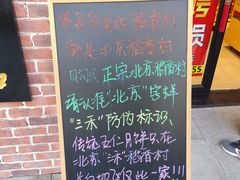 不是所有的稻香村
都是北京稻香村
购买正宗北京稻香村
请认准"北京"字样
"三禾"防伪标识、
传统五仁月饼只在
北京"三禾"稻香村
仅此一家!!!
员